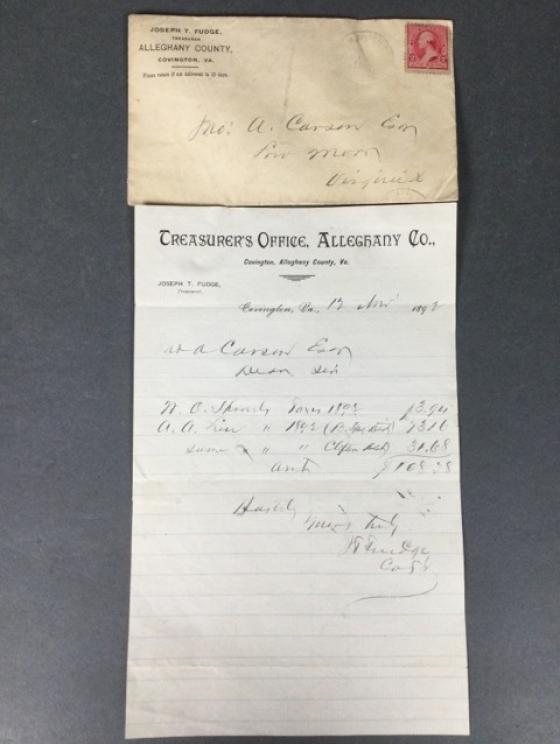 JOSEPH T. FUDGE,
TREASURER
ALLEGHANY COUNTY,
COVINGTON, VA.
Please return if not delivered in 10 days.
Jno: A. Carson Esq
Low Moor
Virginia
TREASURER'S OFFICE, ALLEGHANY CO.,
Covington, Alleghany County, Va.
JOSEPH T. FUDGE,
Treasurer.
Covington, Va., 12 Nov 1892
Carson Esq
Dear Sir
Taxes 1892 $3.94
A. A. " 1892 73.16
same " " Clifton Dist) 31.68
amt $108.78
Hastily
Yours Truly
J T Fudge